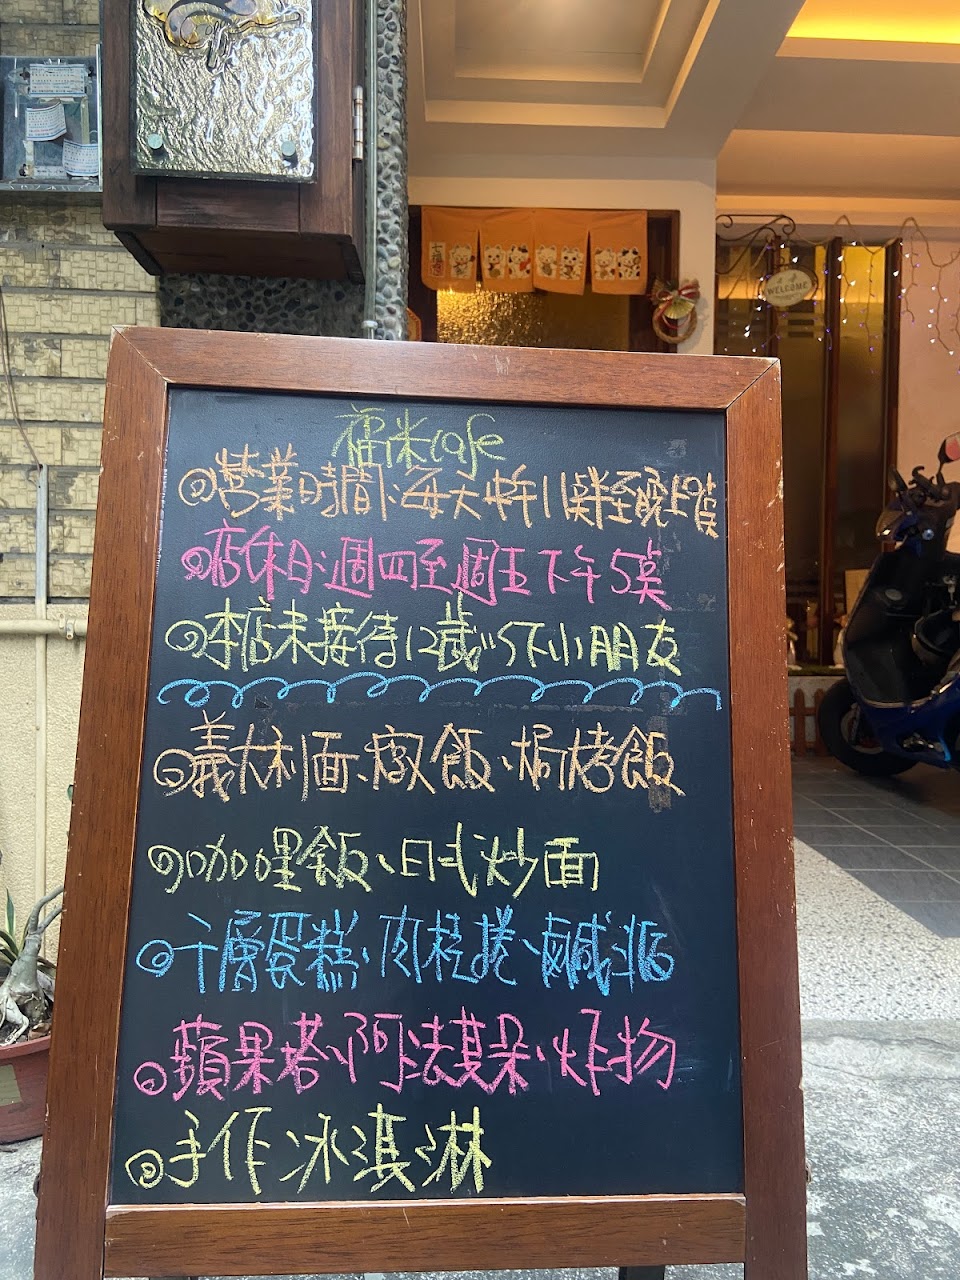 WELCOME
福米cafe
營業時間:每天中午11點半至晚上8點
店休日:週四至週五下午5點
本店未接待12歲以下小朋友
義大利面、燉飯、焗烤飯
咖哩飯、日式炒面
千層蛋糕、肉桂捲、鹹派
蘋果塔、阿法其朵、炸物
手作冰淇淋